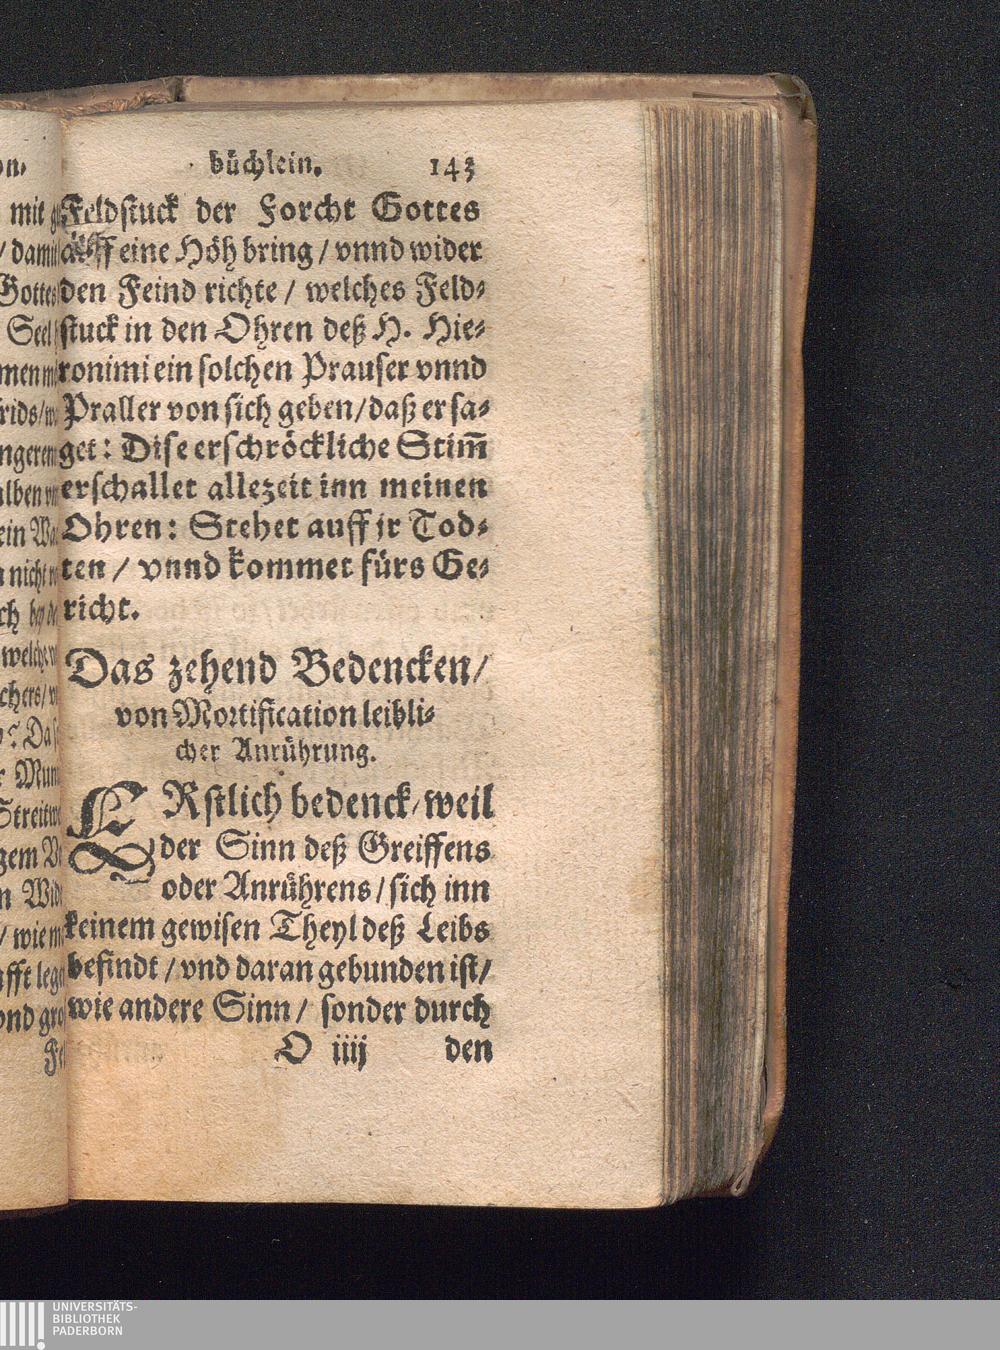 büchlein. 143
Feldstuck der Forcht Gottes
auff eine Höh bring / vnnd wider
den Feind richte / welches Feld-
stuck in den Ohren deß H. Hie-
ronimi ein solchen Prauser vnnd
Praller von sich geben / daß er sa-
get: Dise erschröckliche Stim̄
erschallet allezeit inn meinen
Ohren: Stehet auff jr Tod-
ten / vnnd kommet fürs Ge-
richt.
Das zehend Bedencken /
von Mortification leibli-
cher Anrührung.
ERstlich bedenck / weil
der Sinn deß Greiffens
oder Anrührens / sich inn
keinem gewisen Theyl deß Leibs
befindt / vnd daran gebunden ist /
wie andere Sinn / sonder durch
O iiij den
mit
/ damit
Gottes
Seel
welche
Mun
/ wie
UNIVERSITÄTS-
BIBLIOTHEK
PADERBORN